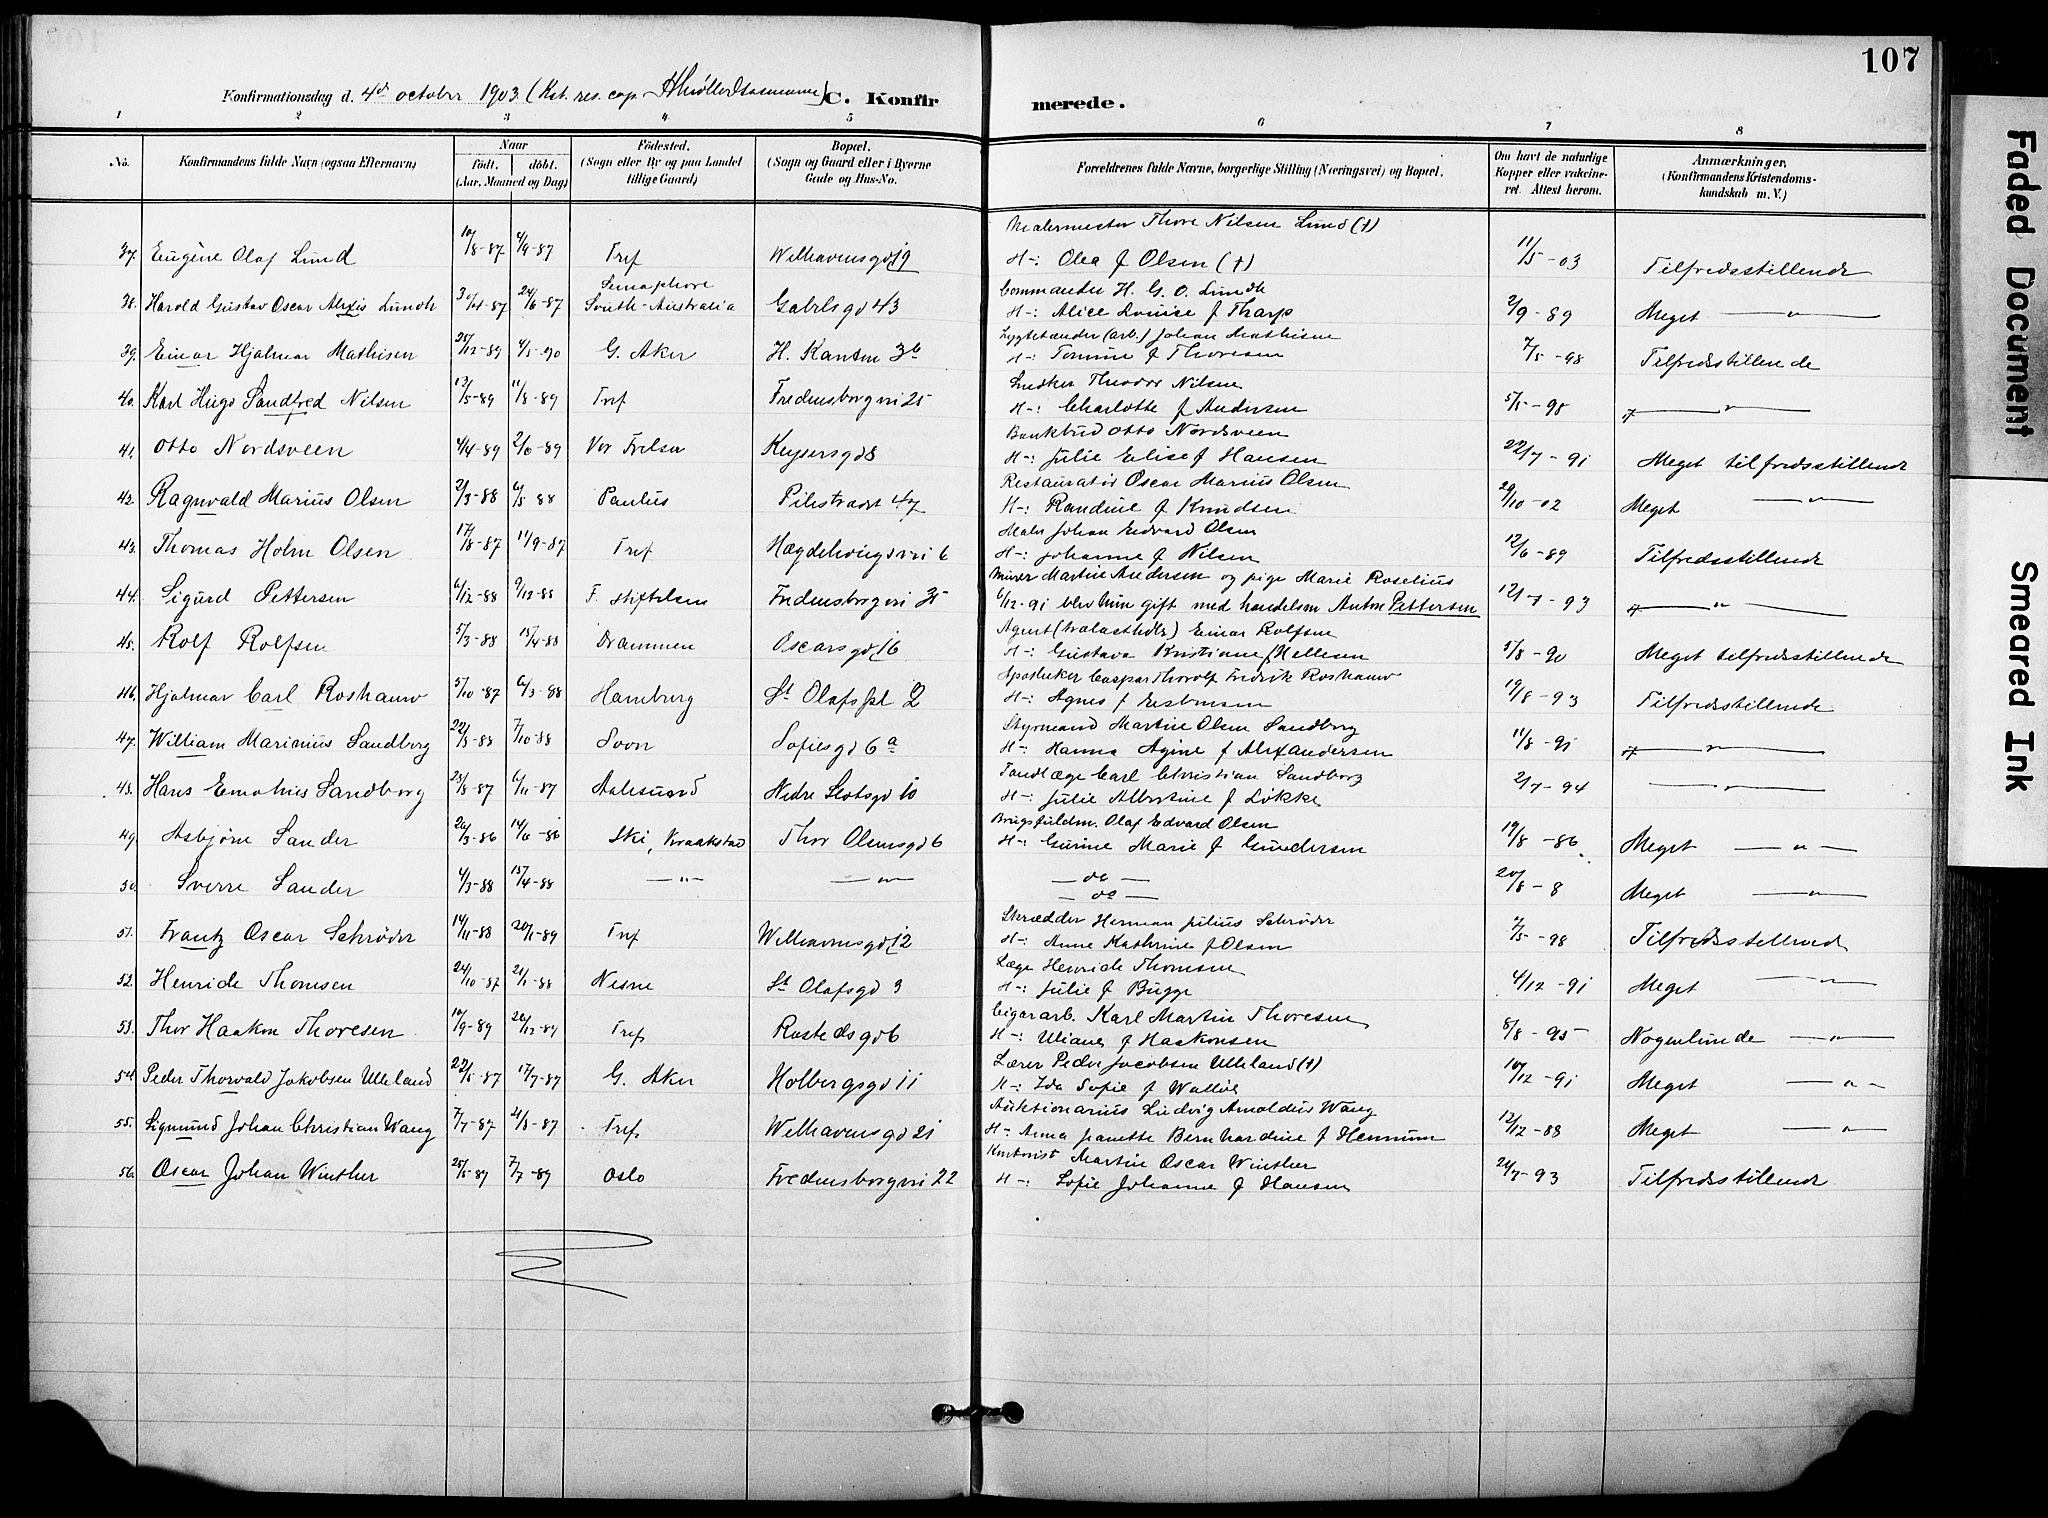 107
Konfirmationsdag d. 4de october 1903 (Kst. res. cap. C. Konfirmerede.
1 2 3 4 5 6 7 8
No. Konfirmandens fulde Navn (ogsaa Efternavn) Naar født. døbt. (Aar, Maaned og Dag) Fødested. (Sogn eller By og paa Landet tillige Gaard) Bopæl. (Sogn og Gaard eller i Byerne Gade og Hus-No. Forældrenes fulde Navne, borgerlige Stilling (Næringsvei) og Bopæl. Om havt de naturlige Kopper eller vakcineret. Attest herom. Anmærkninger. (Konfirmandens Kristendomskundskab m. V.)
Malermester Thore Nilsen Lund (†)
37. Eugène Olaf Lund 10/8-87 4/9-87 Tref Welhavensgd 19 H-: Olea f Olsen (†) 11/5-03 Tilfredsstillende
Semaphore Commander H. G. O. Lundh
38. Harold Gustav Oscar Alexis Lundh 30/4-87 24/6-87 South-Australia Gabelsgd 43 H-: Alice Louise f Tharp 2/9-89 Meget -"-
Lygtetænder (arb.) Johan Mathisen
39. Einar Hjalmar Mathisen 28/12-89 4/5-90 G. Aker H. Kanten 3b H-: Tomine f Thoresen 7/5-98 Tilfredsstillende
Snedker Theodor Nilsen
40. Karl Hugo Sandfred Nilsen 13/5-89 11/8-89 Tref Fredensborgvei 25 H-: Charlotte f Andersen 5/5-98 -"-
Bankbud Otto Nordsveen
41. Otto Nordsveen 4/4-89 2/6-89 Vor Frelser Keysersgd 8 H-: Julie Elise f Hansen 22/7-91 Meget tilfredsstillende
Restauratør Oscar Marius Olsen
42. Ragnvald Marius Olsen 2/3-88 6/5 88 Paulus Pilestrædet 47 H-: Randine f Knudsen 29/10-02 Meget -"-
Maler Johan Edvard Olsen
43. Thomas Holm Olsen 17/8-87 11/9-87 Tref Hægdehougsvei 6 H-: Johanne f Nilsen 12/6-89 Tilfredsstillende
Murer Martin Andersen og pige Marie Roselius
44. Sigurd Pettersen 6/12-88 9/12-88 F. stiftelsen Fredensborgvei 35 6/12-91 blev hun gift med handelsm Anton Pettersen 12/7-93 -"-
Agent Einar Rolfsen
45. Rolf Rolfsen 5/3-88 15/4-88 Drammen Oscarsgd 16 H-: Gustava Kristiane f Hellesen 5/8-90 Meget tilfredsstillende
Apotheker Caspar Thorolf Fredrik Roshauw
46. Hjalmar Carl Roshauw 5/10-87 6/3-88 Hamburg St Olafspl 2 H-: Agnes f Esbensen 19/8-93 Tilfredsstillende
Styrmand Martin Olsen Sandborg
47. William Marinius Sandborg 22/8-88 7/10-88 Soon Sofiesgd 6a H-: Hanna Agine f Alexandersen 11/8-91 -"-
Tandlæge Carl Christian Sandborg
48. Hans Sandborg 23/8-87 6/11-87 Aalesund Nedre Slotsgd 10 H-: Julie Albertine f Løkke 2/7-94 -"-
Brugsfuldm. Olaf Edvard Olsen
49. Asbjørn Sander 26/3-86 14/6-86 Ski, Kraakstad Thor Olsensgd 6 H-: Gurine Marie f Gundersen 19/8-86 Meget -"-
-do-
50. Sverre Sander 4/3-88 15/4-88 -"- -"- -do- 20/8-8 Meget -"-
Skrædder Herman Julius Schrøder
51. Frantz Oscar Schrøder 14/11-88 20/1-89 Tref Welhavensgd 12 H-: Anne Kathrine f Olsen 7/5-98 Tilfredsstillend
Læge Henrich Thomsen
52. Henrich Thomsen 24/10-87 21/1-88 Nesne St Olafsgd 3 H-: Julie f Bugge 4/12-91 Meget -"-
Cigararb. Karl Martin Thoresen
53. Thor Haakon Thoresen 10/9-89 26/12-89 Tref Rostedsgd 6 H-: Uliane f Haakonsen 8/8-95 Nogenlunde -"-
Lærer Peder Jacobsen Ulleland (†)
54. Peder Thorvald Jakobsen Ulleland 22/5-87 17/7-87 G. Aker Holbergsgd 11 H-: Ida Sofie f Walløe 10/12-91 Meget -"-
Auktionarius Ludvig Arnoldus Wang
55. Sigmund Johan Christian Wang 7/7-87 21/8-87 Tref Welhavensgd 21 H-: Anna Jeanette Bernhardine f Hennum 12/12-88 Meget -"-
Kontorist Martin Oscar Winther
56. Oscar Johan Winther 25/5-89 7/7-89 Oslo Fredensborgvei 22 H-: Sofie Johanne f Hansen 24/7-93 Tilfredsstillende
Faded Document
Smeared Ink